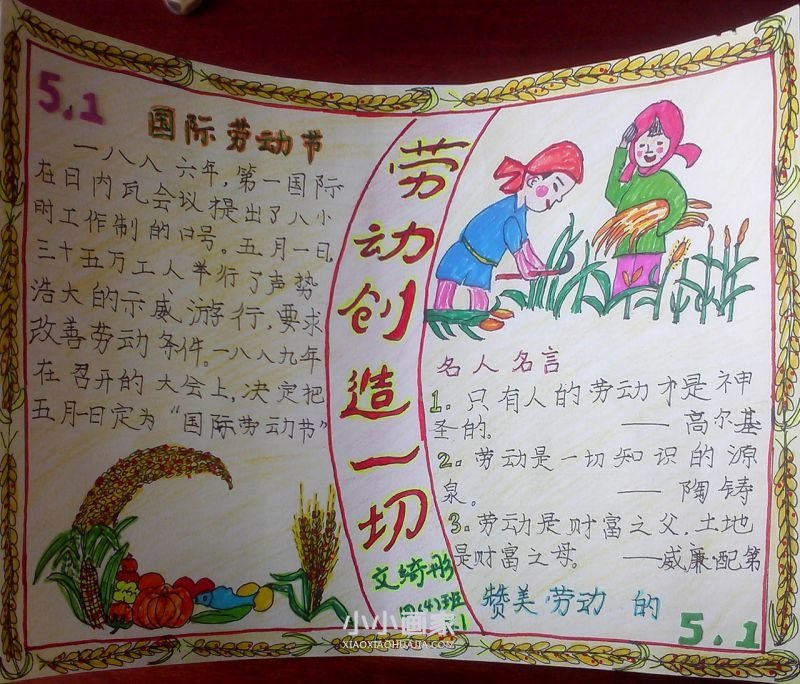 5.1
国际劳动节
一八八六年,第一国际
在日内瓦会议提出了八小
时工作制的口号。五月一日,
三十五万工人举行了声势
浩大的示威游行,要求
改善劳动条件。一八八九年
在召开的大会上,决定把
五月一日定为“国际劳动节”
劳动创造一切
文绮彤
四(4)班
名人名言
1。只有人的劳动才是神
圣的。 ——高尔基
2。劳动是一切知识的源
泉。 ——陶铸
3。劳动是财富之父,土地
是财富之母。 ——威廉·配第
赞美劳动的
5.1
小小画家
XIAOXIAOHUAJIA.COM